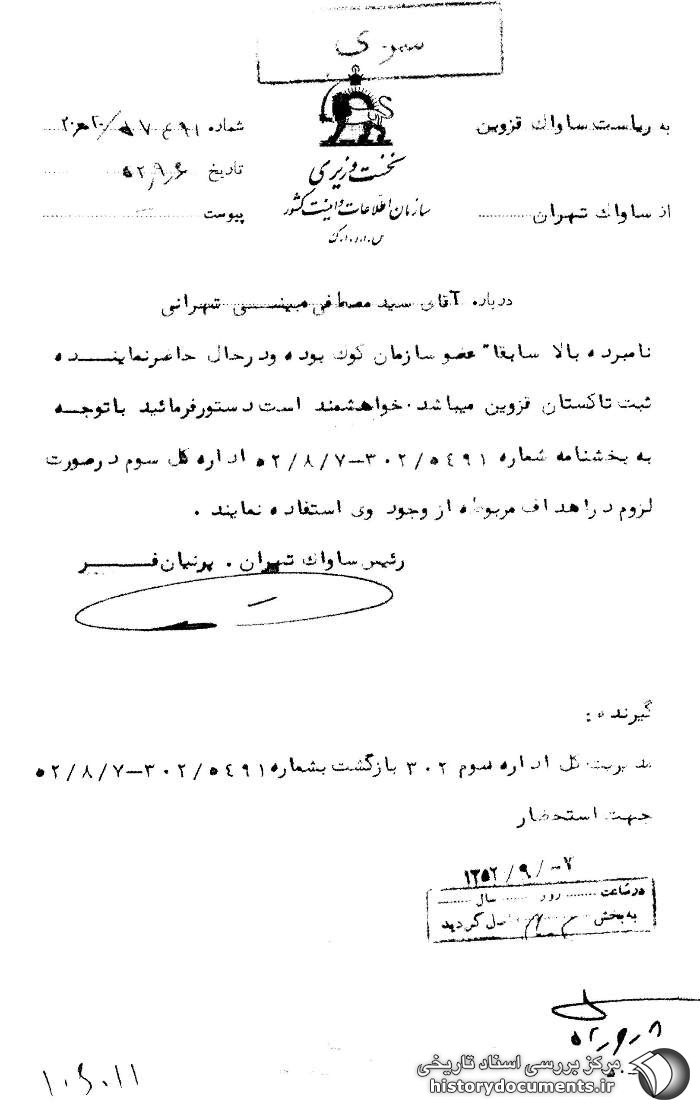 سری
به ریاست ساواک قزوین
از ساواک تهران
نخست وزیری
سازمان اطلاعات و امنیت کشور
س.ا.و.ا.ک
شماره
تاریخ ۵۲,۹,۶
پیوست
درباره آقای سید مصطفی مبینی تهرانی
نامبرده بالا سابقا" عضو سازمان کوک بوده ودرحال حاضرنماینده
ثبت تاکستان قزوین میباشد.خواهشمند است دستورفرمائید باتوجه
به بخشنامه شماره ۳۰۲/۵۴۹۱-۵۲/۸/۷ اداره کل سوم درصورت
لزوم دراهداف مربوطه از وجود وی استفاده نمایند .
رئیس ساواک تهران . پرنیان فر
گیرنده :
مدیریت کل اداره سوم ۳۰۲ بازگشت بشماره ۳۰۲/۵۴۹۱-۵۲/۸/۷
جهت استحضار
۱۳۵۲/۹/-۷
درساعت روز سال
به بخش گردید
۵۲,۹,۸
۱۰۶۰۱۱
مرکز بررسی اسناد تاریخی
historydocuments.ir